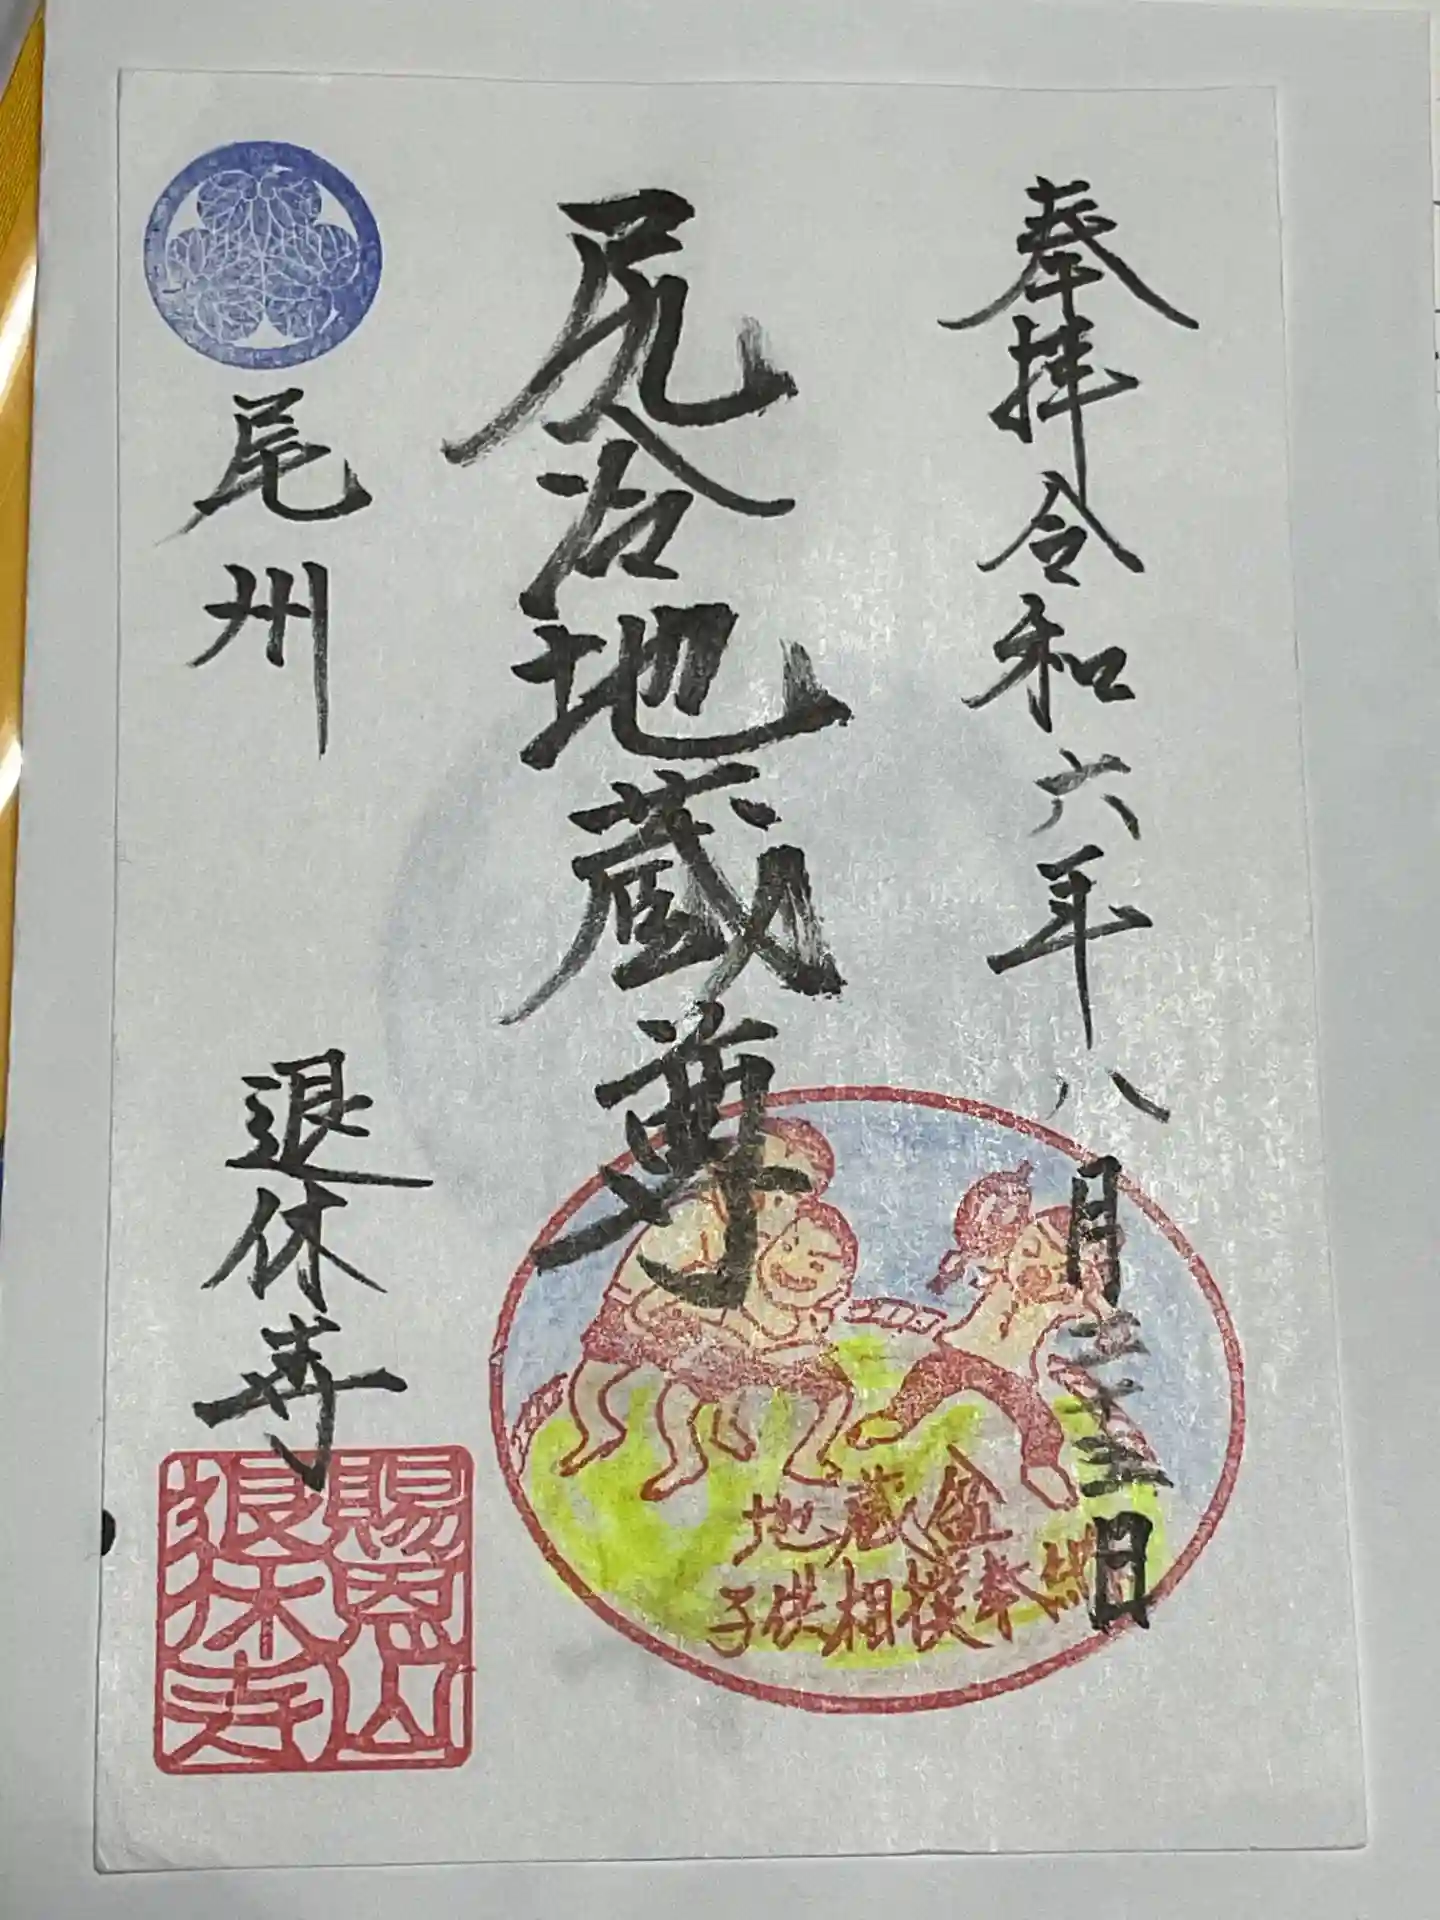 奉拝令和六年八月二十五日
尻冷地蔵尊
地蔵盆
子供相撲奉納
尾州 退休寺
賜恩山
退休寺